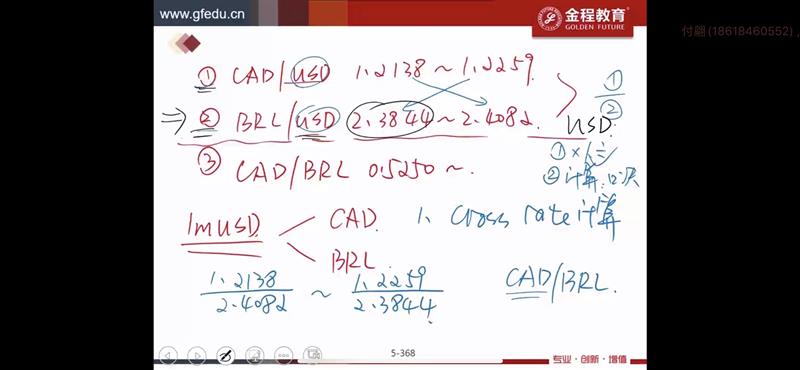 www.gfedu.cn
金程教育
GOLDEN FUTURE
付翩 (18618460552) ,
① CAD/USD 1.2138 ~ 1.2259
⇒ ② BRL/USD 2.3844 ~ 2.4082. USD.
①
②
③ CAD/BRL 0.5250 ~.
① × /÷
② 计算:
1m USD. CAD. 1. Cross rate 计算
BRL.
1.2138 / 2.4082 ~ 1.2259 / 2.3844
CAD/BRL.
5-368
专业·创新·增值